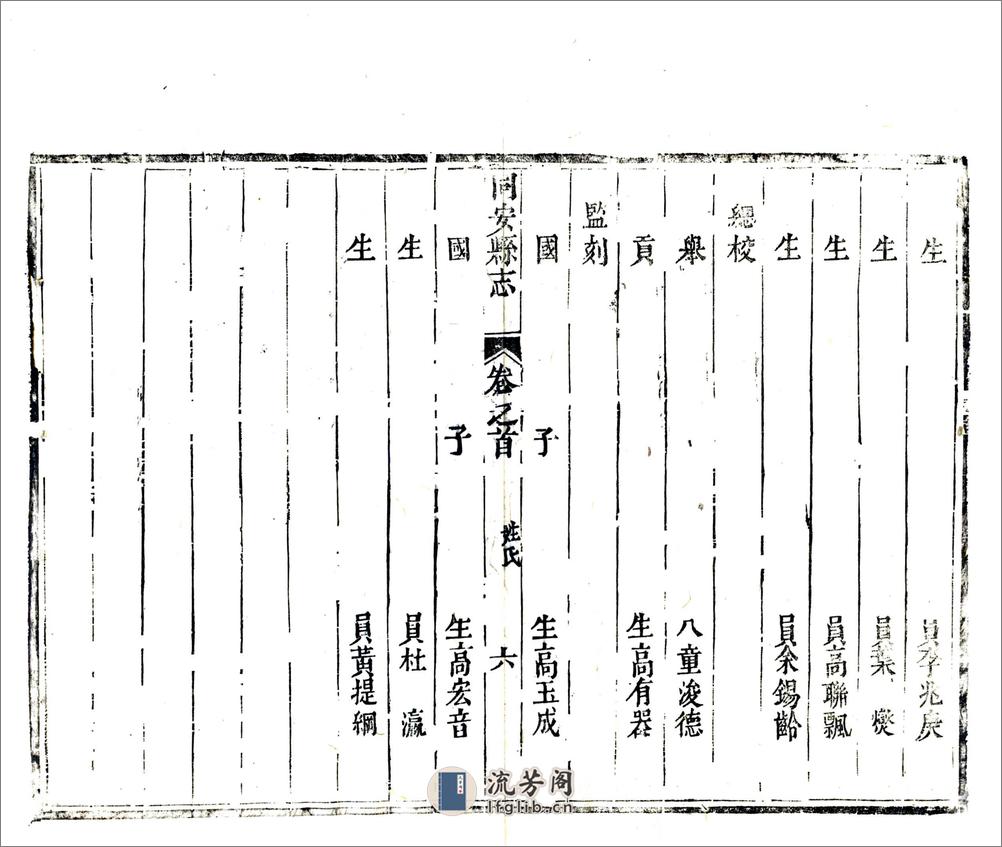 生 員李兆庚
生 員葉 爕
生 員高聯飄
生 員余錫齡
總校
舉 人童浚德
貢 生高有器
監刻
國 子 生高玉成
同安縣志 卷之首 姓氏 六
國 子 生高宏音
生 員杜 瀛
生 員黃提綱
流芳阁
lfglib.cn